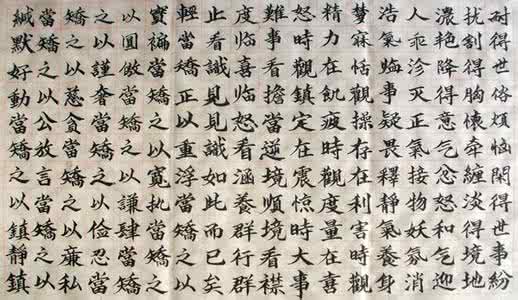 耐得世俗煩惱閑得世事紛
扰割得胸懷牽纏淡得境地
濃艷降得意氣忿怒和氣迎
人乖沴灭正气接物妖氛消
浩氣臨事疑畏釋靜氣養身
夢寐恬觀操存在利害時觀
精力在飢疲時觀度量在喜
怒時觀鎮定在震惊時大事
難事看擔當逆境順境看襟
度临喜临怒看涵養群行群
止看識見見識如此而已矣
輕當矯正以重浮當矯之以
實褊當矯之以寬执當矯之
以圓傲當矯之以謙肆當矯
之以謹奢當矯之以俭忍當
矯之以慈貪當矯之以廉私
當矯之以公放言當矯之以
緘默好動當矯之以鎮靜鎮